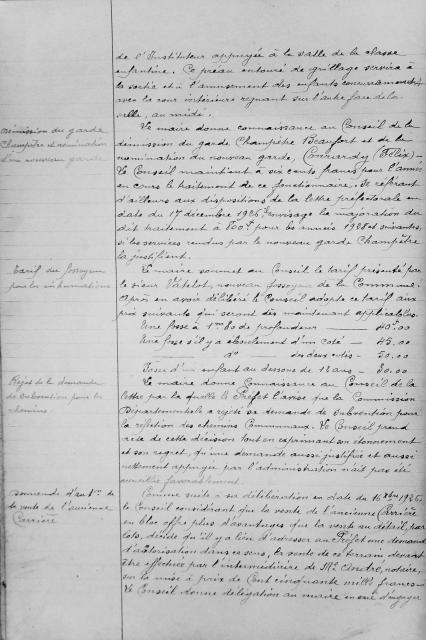 de l'Instituteur appuyée à la salle de la classe
enfantine. Ce préau entouré de grillage servira à
la sortie et à l'amusement des enfants concurremment
avec la cour intérieure régnant sur l'autre face de la
salle, au midi.
Démission du garde
Champêtre et nomination
d'un nouveau garde
Le maire donne connaissance au Conseil de la
démission du garde Champêtre Beaufort et de la
nomination du nouveau garde, (Félix) –
Le Conseil maintient à six cents francs pour l'année
en cours le traitement de ce fonctionnaire. Se référant
d'ailleurs aux dispositions de la lettre préfectorale en
date du 17 décembre 1926, envisage la majoration du
dit traitement à 800f pour les années 1928 et suivantes,
si les services rendus par le nouveau garde Champêtre
la justifient.
Tarif du fossoyeur
pour les inhumations
Le maire soumet au Conseil le tarif présenté par
le sieur Vatelot, nouveau fossoyeur de la Commune.
Après en avoir délibéré le Conseil adopte ce tarif aux
prix suivants qui seront dès maintenant applicables.
Une fosse à 1m50 de profondeur — 40.00
Une fosse s'il y a éboulement d'un coté – 45.00
do — des deux cotés – 50.00
Fosse d'un enfant au dessous de 12 ans – 30.00
Rejet de la demande
de subvention pour les
chemins.
Le maire donne Connaissance au Conseil de la
lettre par laquelle le Préfet l'avise que la Commission
Départementale a rejeté sa demande de subvention pour
la réfection des chemins Communaux. Le Conseil prend
acte de cette décision tout en exprimant son étonnement
et son regret, qu'une demande aussi justifiée et aussi
nettement appuyée par l'administration n'ait pas été
accueillie favorablement.
demande d'auton de
la vente de l'ancienne
Carrière
Comme suite à sa délibération en date du 16 1926,
le Conseil considérant que la vente de l'ancienne Carrière
en bloc offre plus d'avantages que la vente au détail, par
lots, décide qu'il y a lieu d'adresser au Préfet une demande
d'autorisation dans ce sens, la vente de ce terrain devant
être effectuée par l'intermédiaire de Me André, notaire,
sur la mise à prix de Cent cinquante mille francs –
Le Conseil donne délégation au maire en vue d'engager